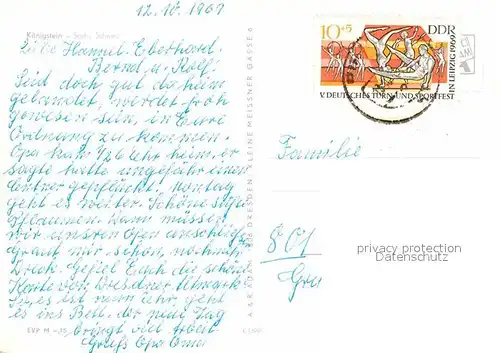 12. 10. 1969
Königstein - Sächs. Schweiz
Liebe Hannel. Eberhard.
Bernd u. Rolf!
Seid doch gut daheim
gelandet, werdet froh
gewesen sein, in Eure
Ordnung zu kommen.
Opa kam 1/26 Uhr heim, er
sagte hätte ungefähr einen
Centner gepflückt. Montag
geht es weiter. Schöne süße
Pflaumen. Dann müssen
wir unseren Ofen
graut mir schon, noch mehr
Dreck. Gefiel Euch die schöne
Karte von Dresdner
es ist neun Uhr, geht
es ins Bett. der neue Tag
bringt viel Arbeit
Grüße Opa Omi
EVP M -,15
V 1100
A. & R. ADAM DRESDEN KLEINE MEISSNER GASSE 6
10+5
DDR
IN LEIPZIG 1969
V. DEUTSCHES TURN- UND SPORTFEST
Familie
801
privacy protection
Datenschutz